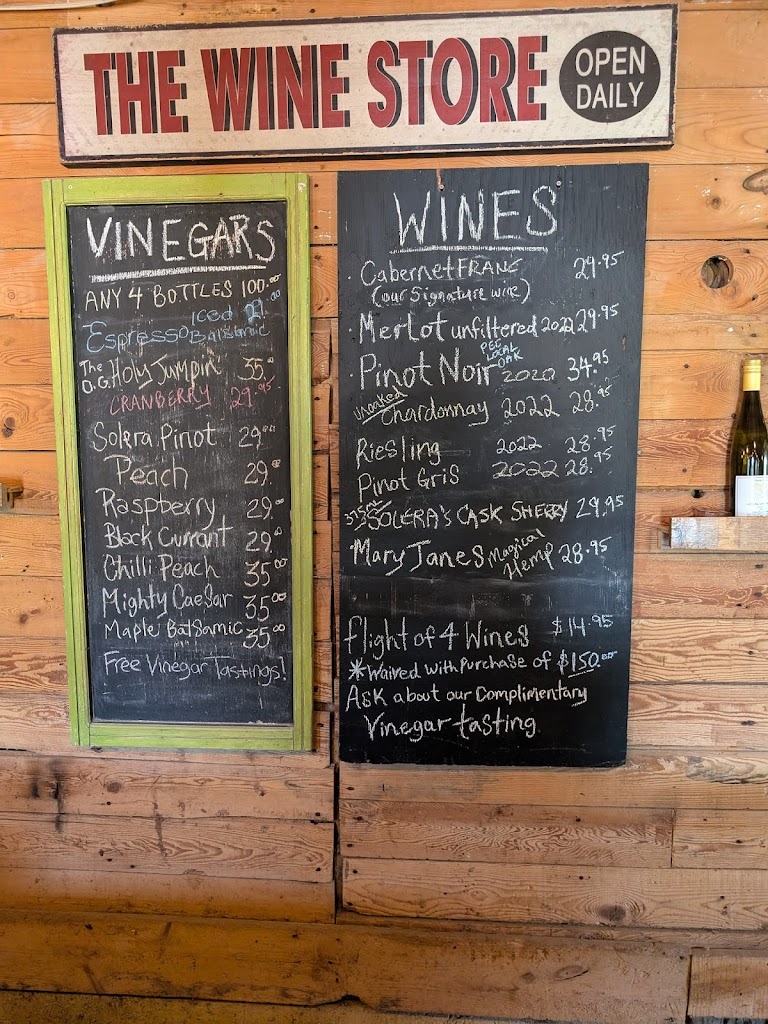 THE WINE STORE
OPEN
DAILY
VINEGARS
ANY 4 BOTTLES 100.00
Iced 29.00
Espresso Balsamic
The O.G. Holy Jumpin 35.00
CRANBERRY 29.95
Solera Pinot 29.00
Peach 29.00
Raspberry 29.00
Black Currant 29.00
Chilli Peach 35.00
Mighty Caesar 35.00
Maple Balsamic 35.00
Free Vinegar Tastings!
WINES
Cabernet FRANC 29.95
(our Signature wine)
Merlot unfiltered 2022 29.95
PEC LOCAL OAK
Pinot Noir 2020 34.95
unoaked Chardonnay 2022 28.95
Riesling 2022 28.95
Pinot Gris 2022 28.95
375ml SOLERA's CASK SHERRY 29.95
Mary Janes Magical Hemp 28.95
Flight of 4 Wines $14.95
*Waived with purchase of $150.00
Ask about our Complimentary
Vinegar tasting